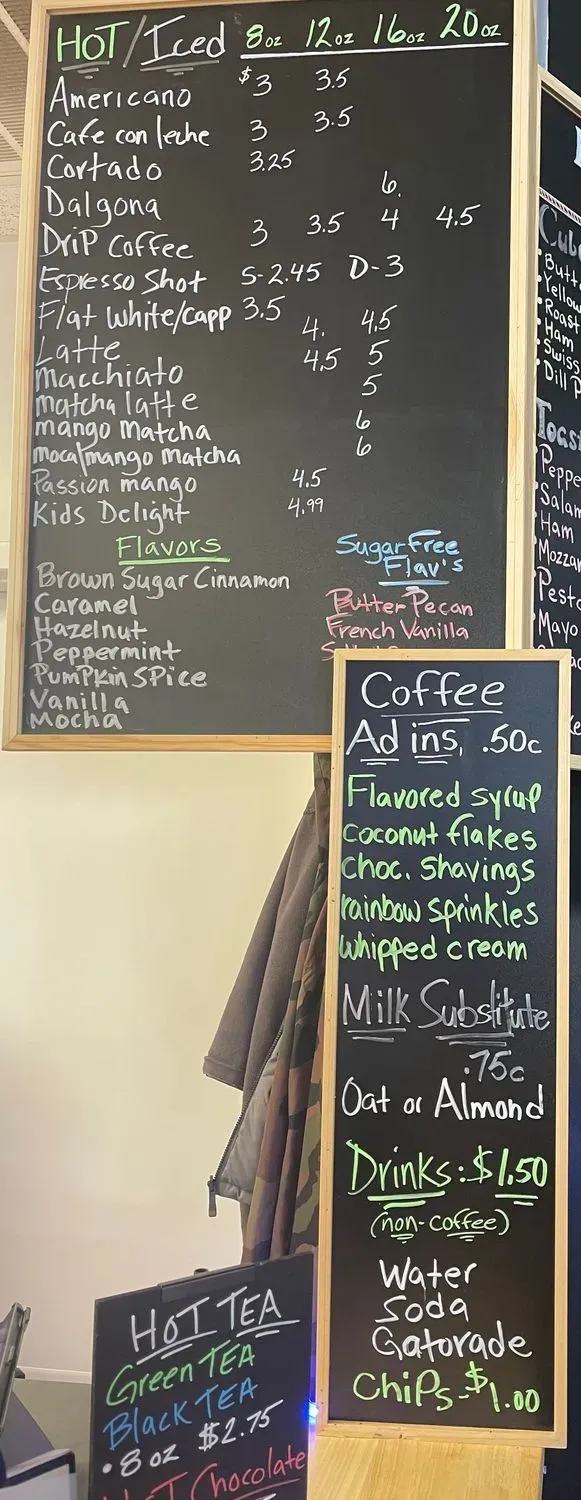 HOT/Iced 8oz 12oz 16oz 20oz
Americano $3 3.5
Cafe con leche 3 3.5
Cortado 3.25
Dalgona 6.
Drip Coffee 3 3.5 4 4.5
Espresso Shot S-2.45 D-3
Flat White/capp 3.5
Latte 4. 4.5
Macchiato 4.5 5
matcha latte 5
mango Matcha 6
moca/mango Matcha 6
Passion mango 4.5
Kids Delight 4.99
Flavors
Brown Sugar Cinnamon
Caramel
Hazelnut
Peppermint
Pumpkin Spice
Vanilla
Mocha
Sugar Free
Flav's
Butter Pecan
French Vanilla
Coffee
Ad ins, .50c
Flavored syrup
coconut flakes
choc. shavings
rainbow sprinkles
whipped cream
Milk Substitute
.75c
Oat or Almond
Drinks: $1.50
(non-coffee)
Water
Soda
Gatorade
Chips-$1.00
HOT TEA
Green TEA
Black TEA
• 8 oz $2.75
HOT Chocolate
• Roast
• Ham
• Swiss
Ham
Mayo